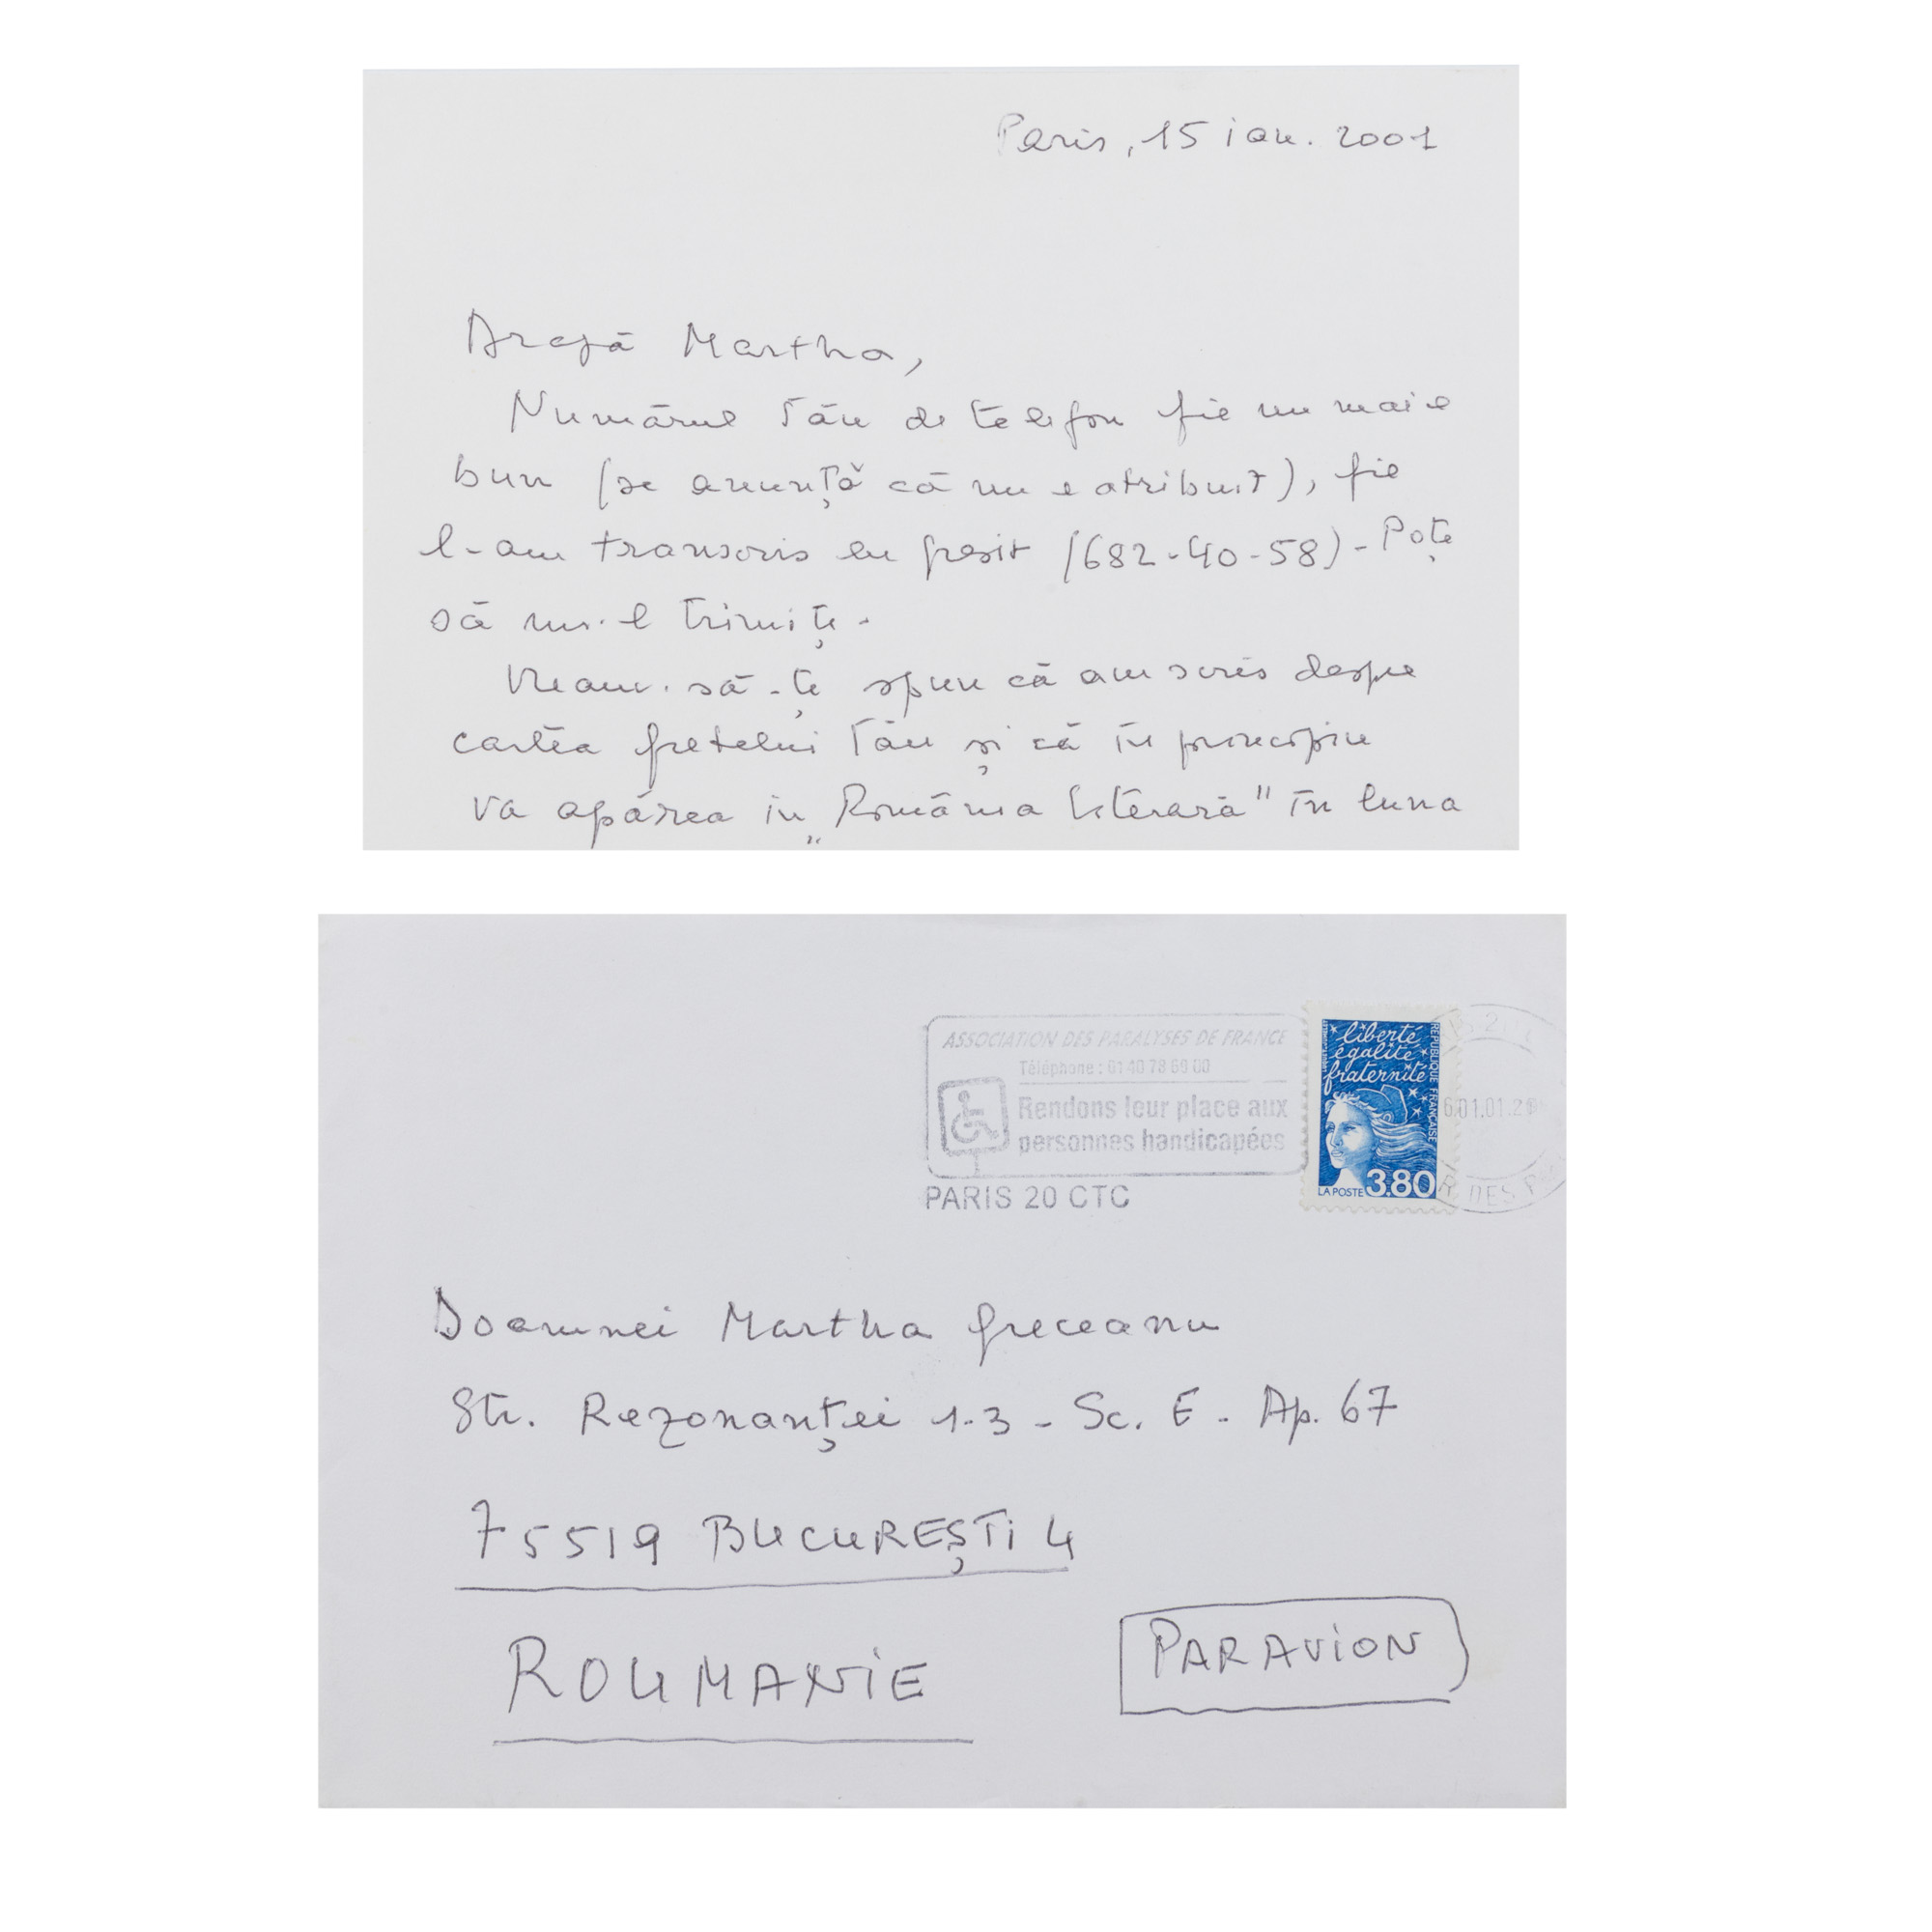 Paris, 15 ian. 2001
Dragă Martha,
Numărul tău de telefon fie nu mai e
bun (se anunță că nu e atribuit), fie
l-am transcris eu greșit (682-40-58) - Poți
să mi-l trimiți.
Vream să-ți spun că am scris despre
cartea fratelui tău și că în principiu
va apărea in „România literară" în luna
ASSOCIATION DES PARALYSES DE FRANCE
Téléphone : 01 40 78 69 00
Rendons leur place aux
personnes handicapées
PARIS 20 CTC
liberté
égalité
fraternité
RÉPUBLIQUE FRANÇAISE
LA POSTE 3.80
01.01
R. DES
Doamnei Martha Greceanu
Str. Rezonanței 1-3 - Sc. E - Ap. 67
75519 BUCUREȘTI 4
ROUMANIE
PAR AVION